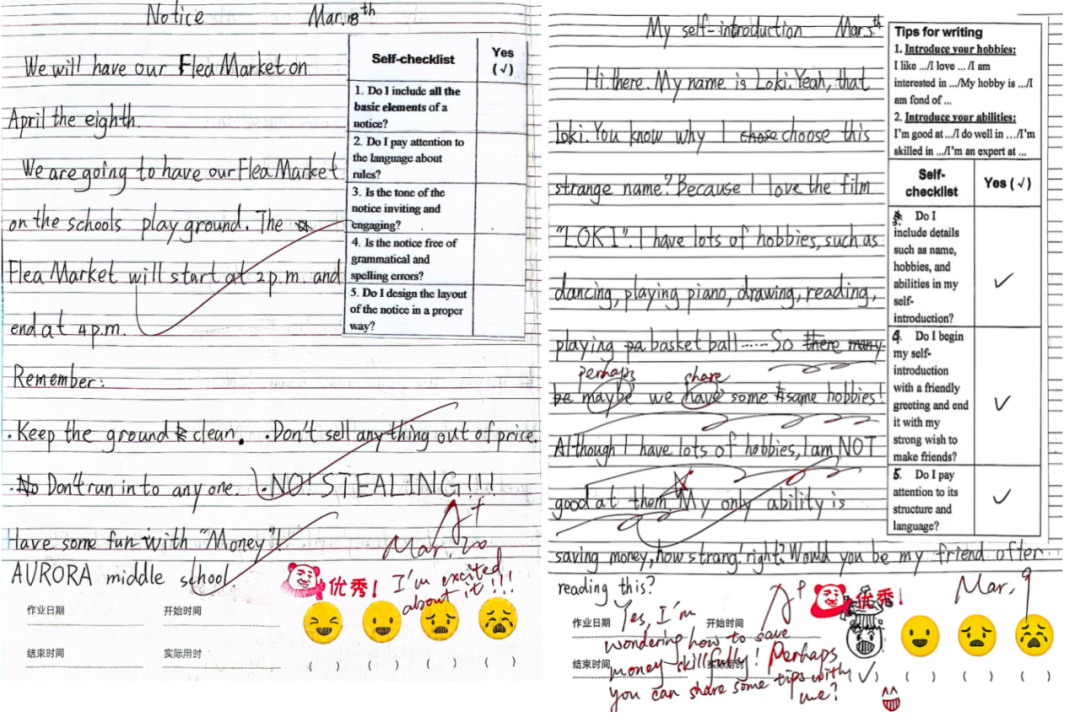 Notice Mar. 18th
We will have our Flea Market on
April the eighth.
We are going to have our Flea Market
on the schools play ground. The
Flea Market will start at 2 p.m. and
end at 4 p.m.
Remember:
·Keep the ground clean. ·Don't sell any thing out of price.
·No Don't run in to any one. ·NO! STEALING!!!
Have some fun with "Money"!
AURORA middle school.
A+
Mar. 20
优秀!
I'm excited
about it!!!
作业日期 开始时间
结束时间 实际用时
( ) ( ) ( ) ( )
Self-checklist Yes
(√)
1. Do I include all the
basic elements of a
notice?
2. Do I pay attention to
the language about
rules?
3. Is the tone of the
notice inviting and
engaging?
4. Is the notice free of
grammatical and
spelling errors?
5. Do I design the layout
of the notice in a proper
way?
My self-introduction Mar.5th
Hi there. My name is Loki. Yeah, that
loki. You know why I chose choose this
strange name? Because I love the film
"LOKI". I have lots of hobbies, such as
dancing, playing piano, drawing, reading,
playing pa basket ball······So there many
perhaps share
be maybe we have some same hobbies!
Although I have lots of hobbies, I am NOT
good at them. My only ability is
saving money, how strang, right? Would you be my friend after
reading this?
Tips for writing
1. Introduce your hobbies:
I like .../I love ... /I am
interested in .../My hobby is .../I
am fond of ...
2. Introduce your abilities:
I'm good at .../I do well in .../I'm
skilled in .../I'm an expert at ...
Self-
checklist Yes (√)
Do I
include details
such as name,
hobbies, and
abilities in my
self-
introduction?
✓
4. Do I begin
my self-
introduction
with a friendly
greeting and end
it with my
strong wish to
make friends?
✓
5. Do I pay
attention to its
structure and
language?
✓
A+
优秀!
Mar. 9
Yes, I'm
wondering how to save
money skillfully! Perhaps
you can share some tips with
me?
作业日期 开始时间
结束时间 实际用时
(✓) ( ) ( ) ( )